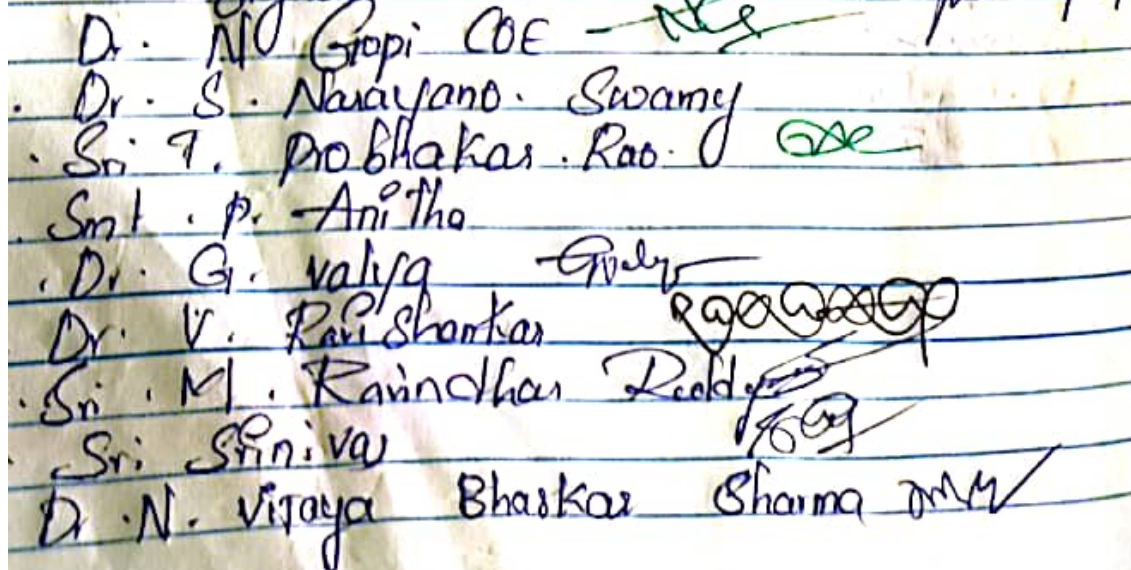 Dr. N Gopi COE
Dr. S. Narayano. Swamy
Sri T. Probhakar. Rao.
Smt. P. Anitha
Dr. G. Valiya
Dr. V. Ravi Shankar
Sri. M. Ravindhar Reddy
Sri Srinivas
Dr. N. Vijaya Bhaskar Sharma